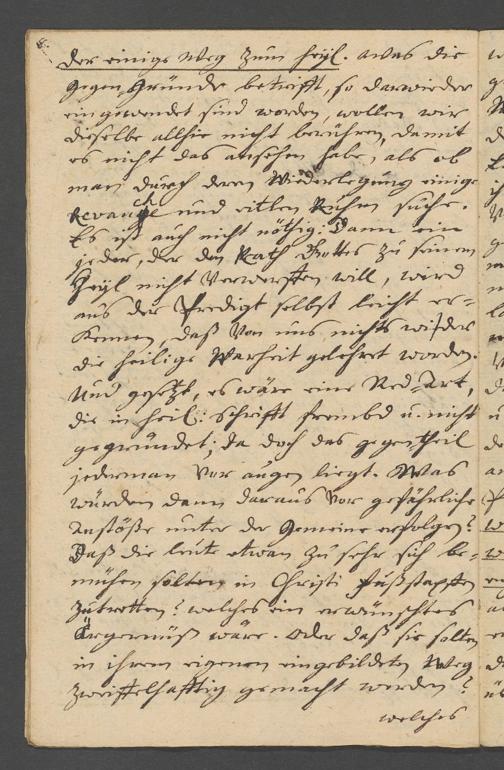 der einige Weg zum Heyl. Was die
gegen Gründe betrifft, so darwieder
eingewendet sind worden, wollen wir
dieselbe allhie nicht berühren, damit
es nicht das ansehen habe, als ob
man durch deren Wiederlegung einige
Revange und eitlen Ruhm suche.
Es ist auch nicht nöthig: Dann ein
jeder, der den Rath Gottes zu seinem
Heyl nicht Verwerffen will, wird
aus der Predigt selbst leicht er-
kennen, daß Von uns nichts wider
die heilige Warheit gelehret worden.
Und gesetzt, es wäre eine Red-Art,
die in heil: Schrifft frembd u. nicht
gegründet; da doch das gegentheil
jederman Vor augen liegt. Was
würden dann daraus Vor gefährliche
Anstöße unter der Gemeine erfolgen?
Daß die leute etwan zu sehr sich be-
mühen solten in Christi Fußstapffen
zutretten? welches ein erwünschtes
Ärgernüß wäre. Oder daß sie solten
in ihrem eigenen eingebildeten Weg
zweiffelhafftig gemacht werden?
welches